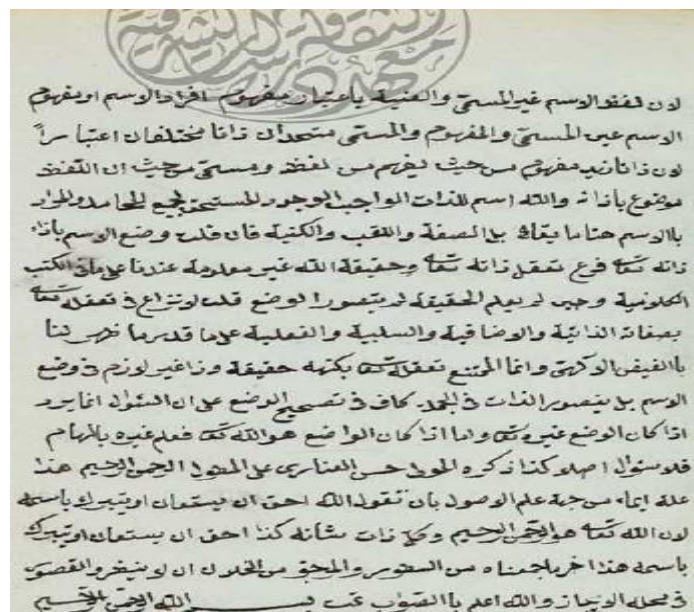 لان لفظ الاسم غير المسمى والعينية باعتبار مفهوم افراد الاسم او مفهوم
الاسم عين المسمى والمفهوم والمسمى متحدان ذاتا مختلفان اعتبارا
لان ذات زيد مفهوم من حيث يفهم من لفظه ومسمى من حيث ان اللفظ
موضوع بازائه والله اسم للذات الواجب الوجود المستحق لجميع المحامد والمراد
بالاسم هنا ما يقابل الصفة واللقب والكنية فان قلت وضع الاسم بازاء
ذاته تعالى فرع تعقل ذاته تعالى وحقيقة الله غير معلومة عندنا على ما في الكتب
الكلامية وحين لم يعلم الحقيقة لم يتصور الوضع قلت لا نزاع في تعقله تعالى
بصفاته الذاتية والاضافية والسلبية والفعلية على ما قدر ما ظهر لنا
بالفيض الالهي وانما الممتنع تعقله تعالى بكنهه حقيقة وذا غير لازم في وضع
الاسم بل يتصور الذات في الجملة كاف في تصحيح الوضع على ان السؤال انما يرد
اذا كان الوضع غيره تعالى واما اذا كان الواضع هو الله تعالى فعلم غيره بالهام
فلا سؤال اصلا كذا ذكره المولى حسن الفناري على المطول الرحمن الرحيم هذا
علة ايماء من جهة علم الاصول بان تقول الله احق ان يستعان او يتبرك باسمه
لان الله تعالى هو الرحمن الرحيم وكل ذات شانه كذا احق ان يستعان او يتبرك
باسمه هذا اخر ما جمعناه من السطور والمرجو من الخلان ان لا ينظر والقصور
في محله الايجاز والله اعلم بالصواب تمت بسم الله الرحمن الرحيم